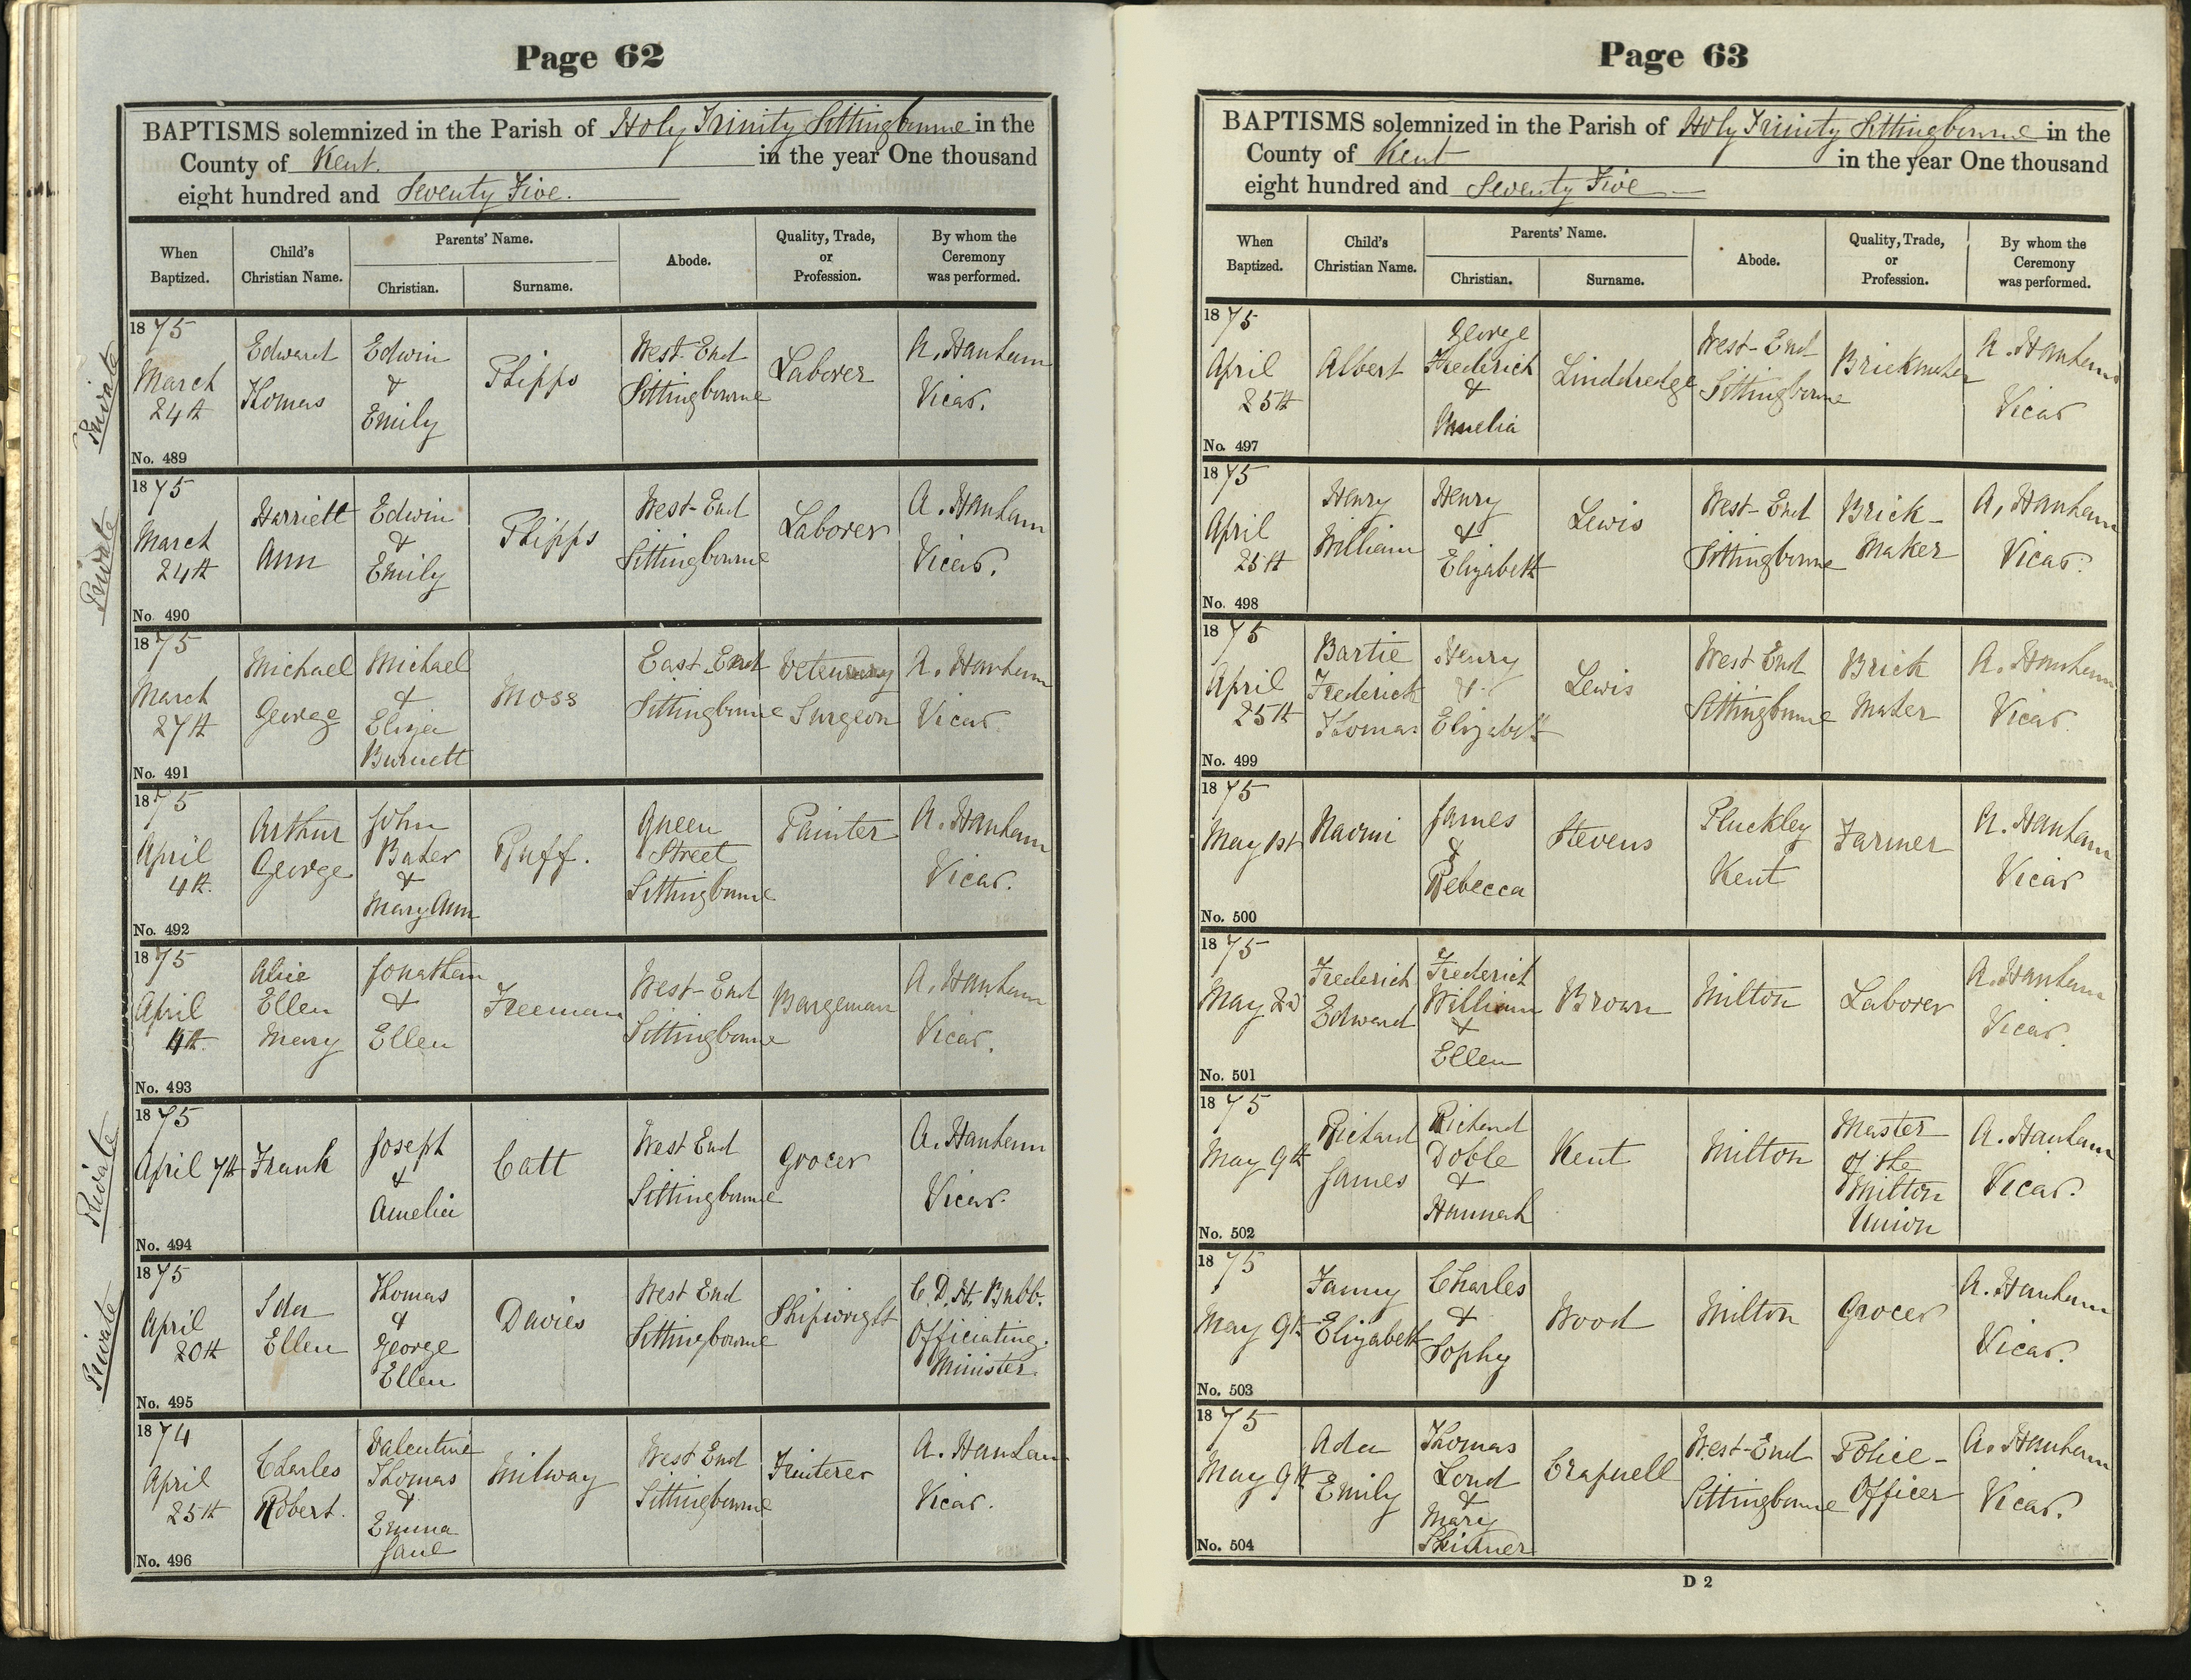 Page 62
BAPTISMS solemnized in the Parish of Holy Trinity Sittingbourne in the
County of Kent. in the year One thousand
eight hundred and Seventy Five.
When Baptized. Child's Christian Name. Parents' Name. Christian. Surname. Abode. Quality, Trade, or Profession. By whom the Ceremony was performed.
Private
1875 March 24th Edward Thomas Edwin & Emily Phipps West End Sittingbourne Laborer A. Hanham Vicar.
No. 489
Private
1875 March 24th Harriett Ann Edwin & Emily Phipps West-End Sittingbourne Laborer A. Hanham Vicar.
No. 490
1875 March 27th Michael George Michael & Eliza Burnett Moss East End Sittingbourne Surgeon A. Hanham Vicar
No. 491
1875 April 4th. Arthur George John Baker & Mary Ann Ruff. Queen Street Sittingbourne Painter A. Hanham Vicar.
No. 492
1875 April 4th. Alice Ellen Mary Jonathan & Ellen Freeman West-End Sittingbourne Bargeman A. Hanham Vicar.
No. 493
Private
1875 April 7th Frank Joseph & Amelia Catt West End Sittingbourne Grocer A. Hanham Vicar.
No. 494
Private
1875 April 20th Ida Ellen Thomas & George Ellen Davies West End Sittingbourne Shipwright C. D. H. Bubb. Officiating Minister.
No. 495
1874 April 25th Charles Robert. Valentine Thomas & Emma Jane Milway West End Sittingbourne Fruiterer A. Hanham Vicar.
No. 496
Page 63
BAPTISMS solemnized in the Parish of Holy Trinity Sittingbourne in the
County of Kent in the year One thousand
eight hundred and Seventy Five
When Baptized. Child's Christian Name. Parents' Name. Christian. Surname. Abode. Quality, Trade, or Profession. By whom the Ceremony was performed.
1875 April 25th Albert George Frederick & Amelia Linddredge West-End Sittingbourne Brickmaker A. Hanham Vicar
No. 497
1875 April 25th Henry William Henry & Elizabeth Lewis West-End Sittingbourne Brick-Maker A. Hanham Vicar.
No. 498
1875 April 25th Bartie Frederick Thomas Henry & Elizabeth Lewis West End Sittingbourne Brick Maker A. Hanham Vicar
No. 499
1875 May 1st Naomi James & Rebecca Stevens Pluckley Kent Farmer A. Hanham Vicar
No. 500
1875 May 2d Frederick Edward Frederick William & Ellen Brown Milton Laborer A. Hanham Vicar.
No. 501
1875 May 9th Richard James Richard Doble & Hannah Kent Milton Master of the Milton Union A. Hanham Vicar.
No. 502
1875 May 9th Fanny Elizabeth Charles & Sophy Wood Milton Grocer A. Hanham Vicar.
No. 503
1875 May 9th Ada Emily Thomas Lond & Mary Skinner Crapnell West-End Sittingbourne Police-Officer A. Hanham Vicar.
No. 504
D 2